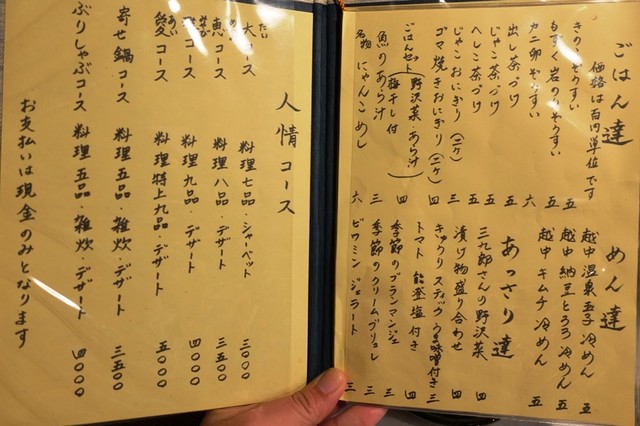 ごはん達
価格は百円単位です
きのこぞうすい 五
もずく岩のりぞうすい 五
カニ卵ぞうすい 六
出し茶づけ 五
じゃこ茶づけ 五
へしこ茶づけ 五
じゃこおにぎり(二ケ) 三
ゴマ焼きおにぎり(二ケ) 三
ごはんセット(野沢菜 あら汁 梅干し付) 四
魚のあら汁 三
名物 にゃんこめし 六
めん達
越中 温泉玉子 冷めん 五
越中 納豆とろろ 冷めん 五
越中 キムチ 冷めん 五
あっさり達
三九郎さんの野沢菜 四
漬け物盛り合わせ 四
きゅうりスティック うま味噌付き 三
トマト 能登塩付き 四
季節のブランマンジェ 三
季節のクリームブリュレ 三
ビワミン ジェラート 三
人情コース
大コース 料理七品・シャーベット 三〇〇〇
恵コース 料理八品・デザート 三五〇〇
コース 料理九品・デザート 四〇〇〇
愛コース 料理特上九品・デザート 五〇〇〇
寄せ鍋コース 料理五品・雑炊・デザート 三五〇〇
ぶりしゃぶコース 料理五品・雑炊・デザート 四〇〇〇
お支払いは現金のみとなります